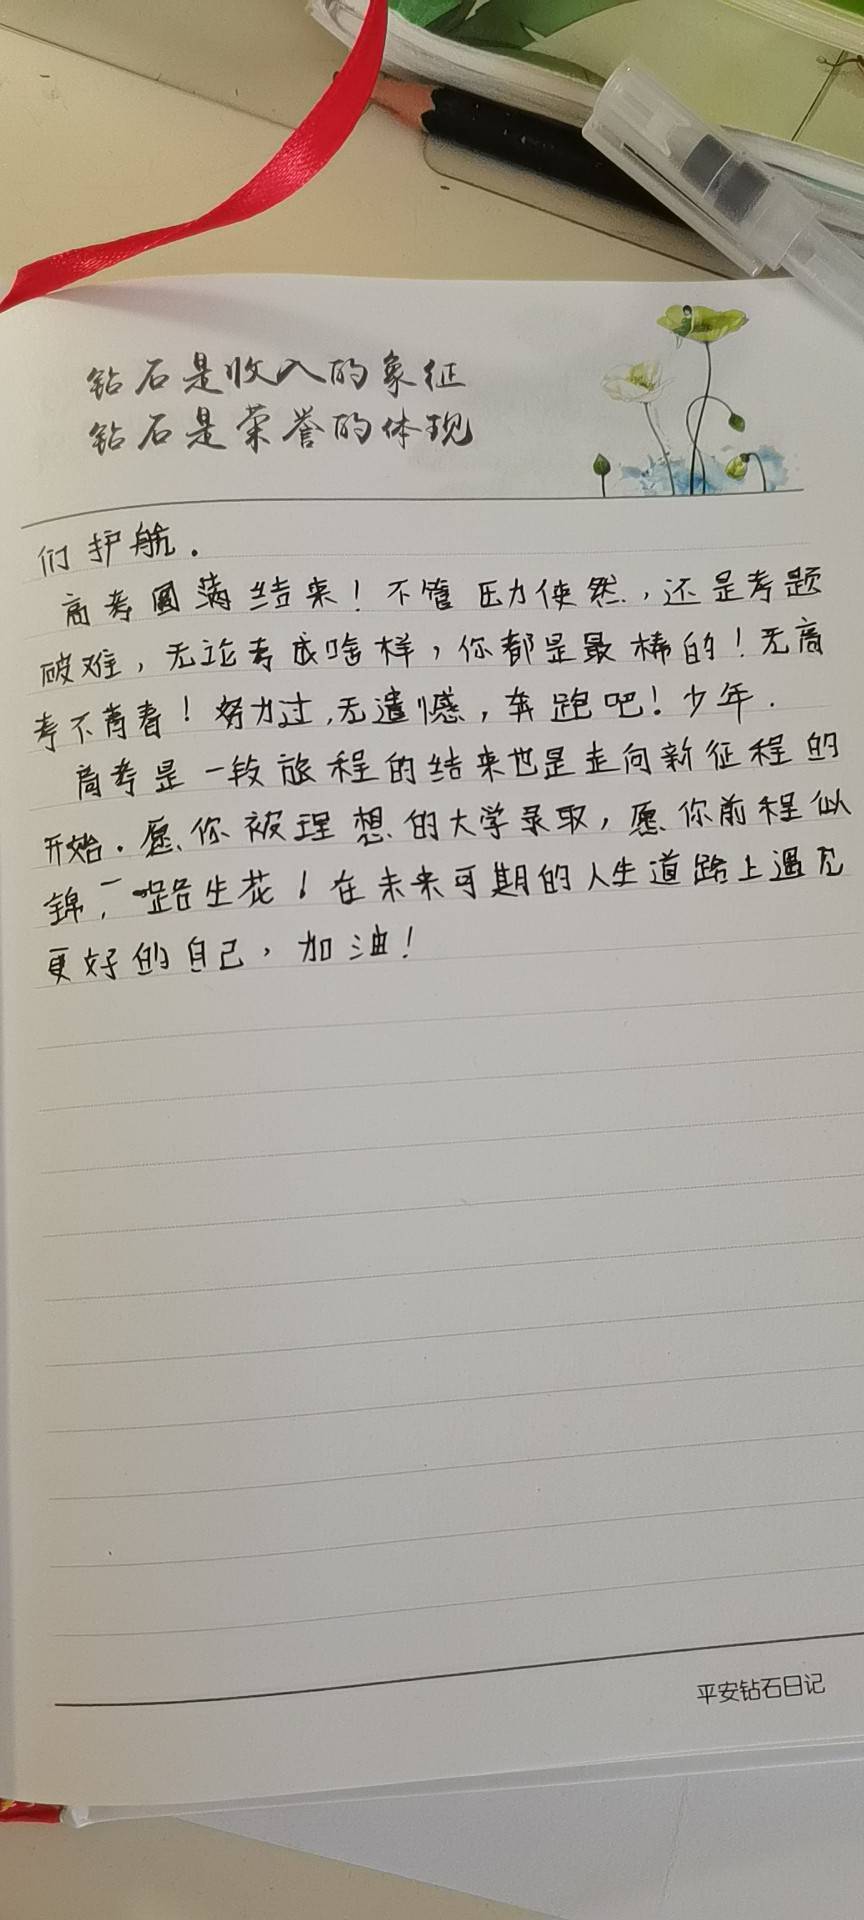 钻石是收入的象征
钻石是荣誉的体现
们护航.
高考圆满结束!不管压力使然,还是考题
破难,无论考成啥样,你都是最棒的!无高
考不青春!努力过,无遗憾,奔跑吧!少年.
高考是一段旅程的结束也是走向新征程的
开始.愿你被理想的大学录取,愿你前程似
锦,一路生花!在未来可期的人生道路上遇见
更好的自己,加油!
平安钻石日记